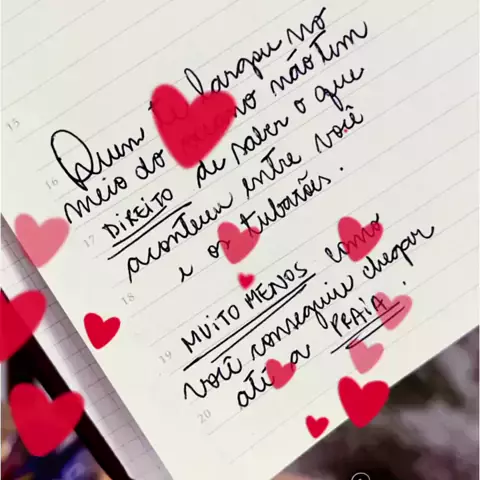 15
Quem te largou no
16
meio do oceano não tem
17
DIREITO de saber o que
aconteceu entre você
18
e os tubarões.
19
MUITO MENOS como
você conseguiu chegar
20
até a PRAIA.